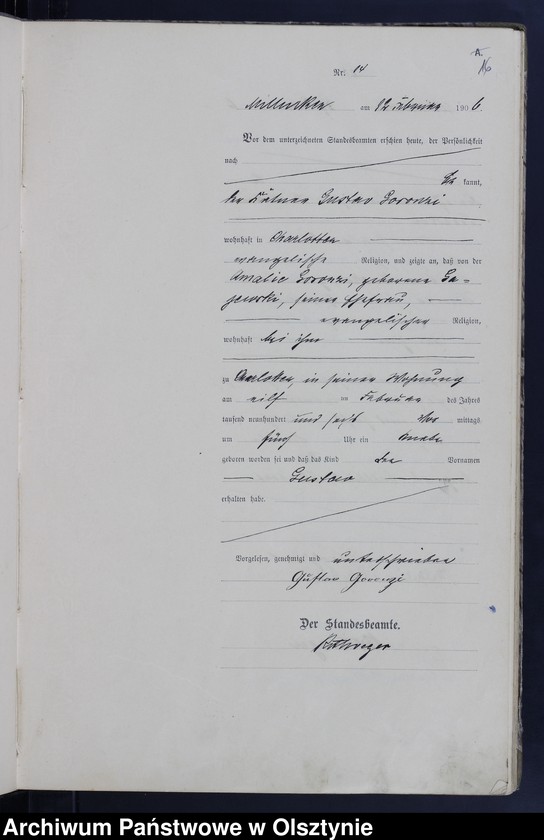 A.
16
Nr. 14
am 12 Februar 1906.
Vor dem unterzeichneten Standesbeamten erschien heute, der Persönlichkeit
nach
be kannt,
der Käthner Gustav Goronzi
wohnhaft in Charlotten
evangelischer Religion, und zeigte an, daß von der
Amalie Goronzi, geborene Ga=
jewski, seiner Ehefrau,
evangelischer Religion,
wohnhaft bei ihm
zu Charlotten, in seiner Wohnung
am elf ten Februar des Jahres
tausend neunhundert und sechs Vor mittags
um fünf Uhr ein Knabe
geboren worden sei und daß das Kind den Vornamen
Gustav
erhalten habe.
Vorgelesen, genehmigt und unterschrieben
Gustav Goronzi
Der Standesbeamte.
Archiwum Państwowe w Olsztynie